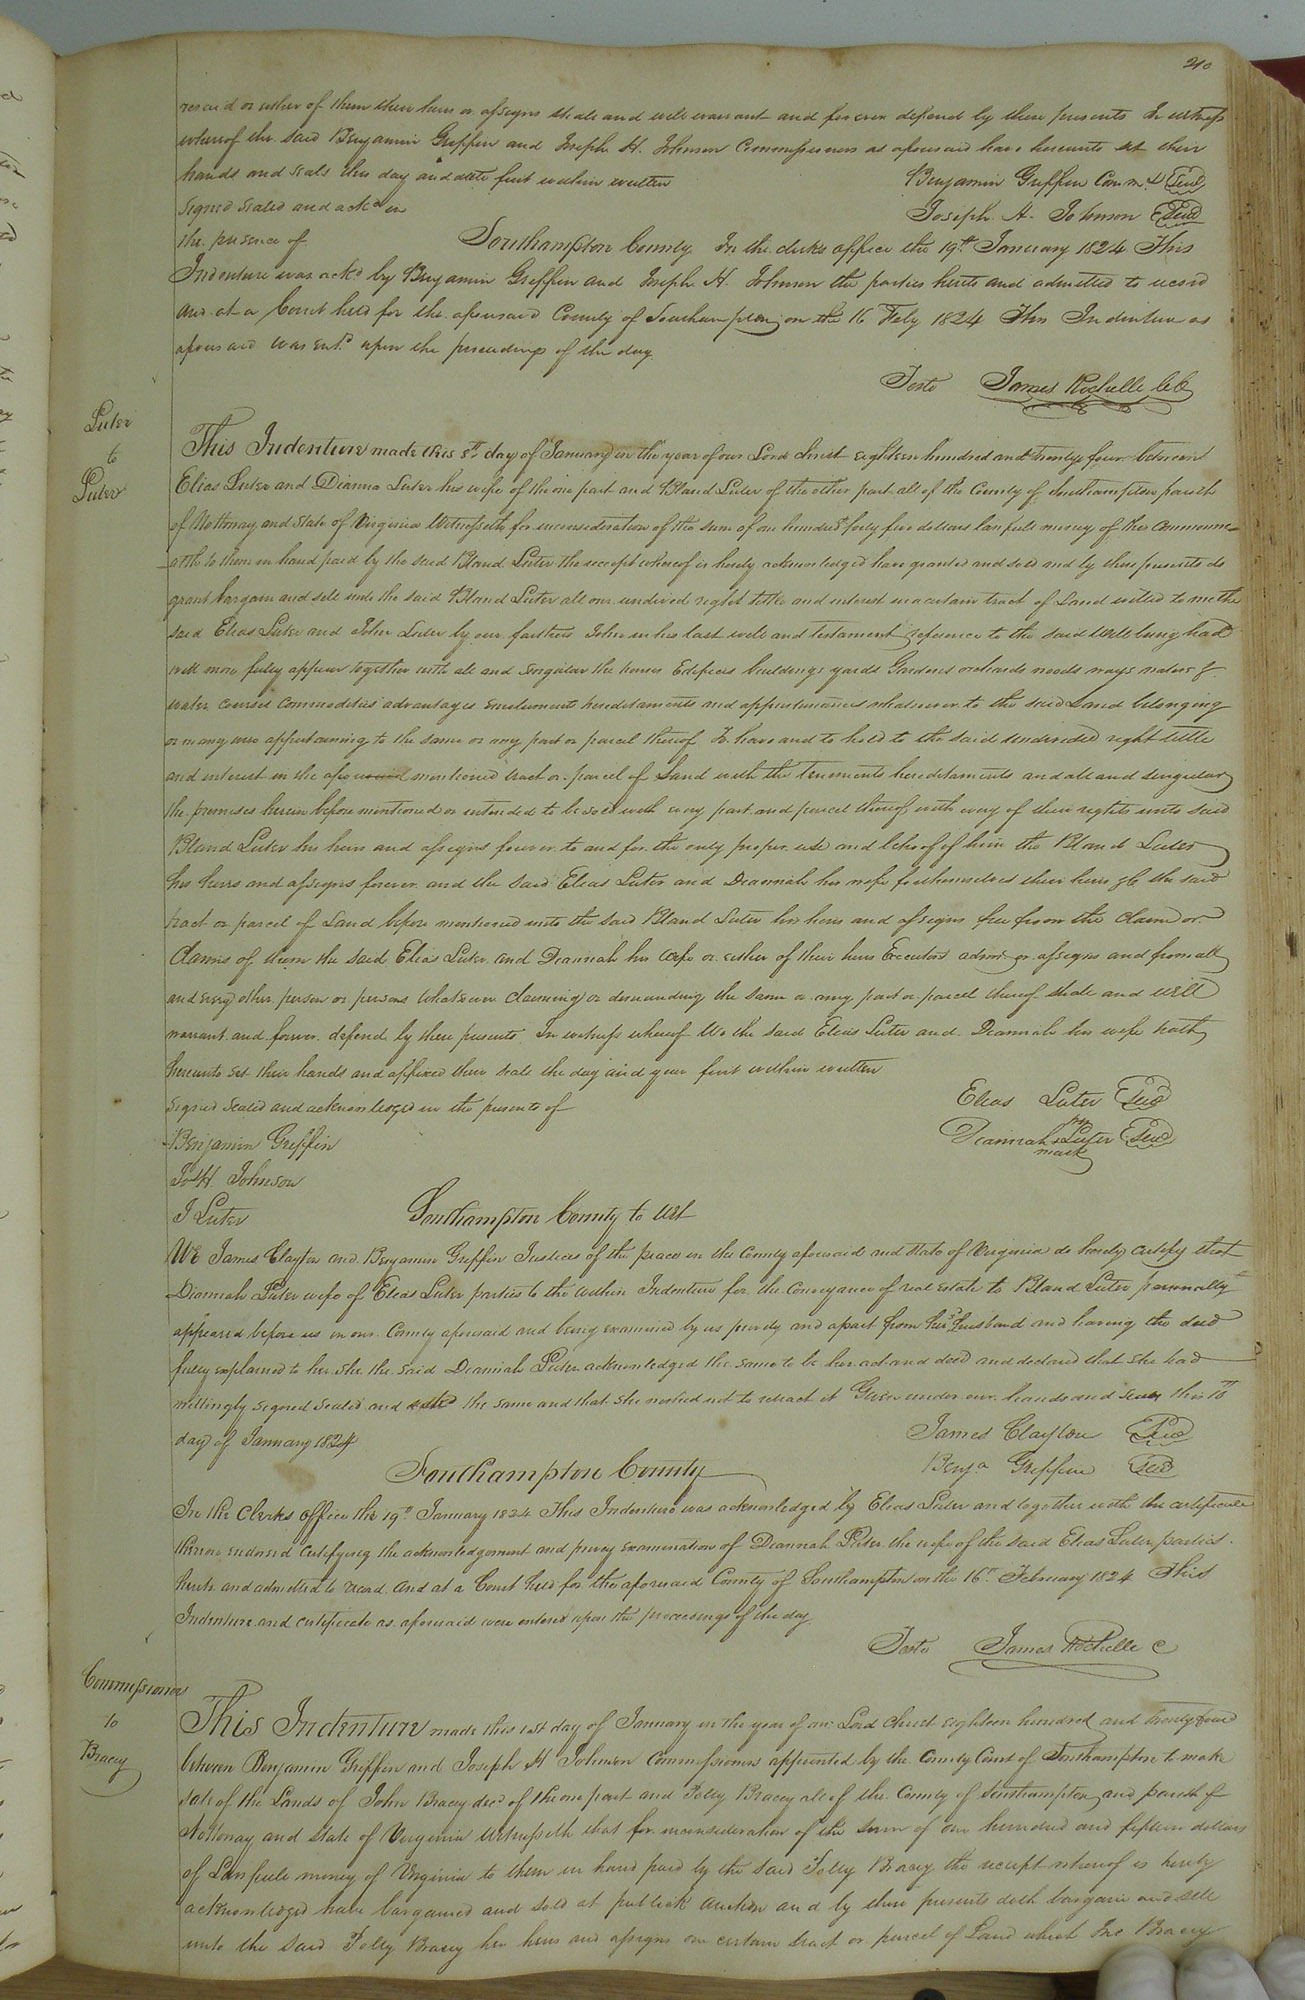 210
resaid or either of them their heirs or assigns shall and will warrant and forever defend by these presents In witness
whereof the said Benjamin Griffin and Joseph H. Johnson Commissioners as aforesaid have hereunto set their
hands and seals this day and date first within written
Benjamin Griffin Comr. Seal
Signed Sealed and ackd in
Joseph H. Johnson Seal
the presence of
Southampton County In the clerks office the 19th January 1824 This
Indenture was ackd by Benjamin Griffin and Joseph H. Johnson the parties hereto and admitted to record
and at a Court held for the aforesaid County of Southampton on the 16 Feby 1824 This Indenture as
aforesaid was entd upon the proceedings of the day
Teste James Rochelle CC
Luter
to
Luter
This Indenture made this 5th day of January in the year of our Lord Christ eighteen hundred and twenty four between
Elias Luter and Dianna Luter his wife of the one part and Bland Luter of the other part all of the County of Southampton parish
of Nottoway and State of Virginia Witnesseth for inconsideration of the sum of one hundred forty five dollars lawfull money of the Commonwe-
-alth to them in hand paid by the said Bland Luter the receipt whereof is hereby acknowledged have granted and sold and by these presents do
grant bargain and sell unto the said Bland Luter all our undived right title and interest in a certain tract of Land willed to me the
said Elias Luter and John Luter by our fathers John in his last will and testament reference to the said Will being had
will more fully appear together with all and singular the houses Edifices buildings yards Gardens orchards woods ways waters &
water courses commodities advantages emoluments hereditaments and appurtenances whatsoever to the said Land belonging
or in any wise appertaining to the same or any part or parcel thereof To have and to hold to the said undivided right title
and interest in the aforesaid mentioned tract or parcel of Land with the tenements hereditaments and all and singular
the premises herein before mentioned or intended to be sold with every part and parcel thereof with every of their rights unto said
Bland Luter his heirs and assigns forever to and for the only proper use and behoof of him the Bland Luter
his heirs and assigns forever and the said Elias Luter and Deannah his wife for themselves their heirs &c the said
tract or parcel of Land before mentioned unto the said Bland Luter his heirs and assigns free from the claim or
claims of them the said Elias Luter and Deannah his wife or either of their heirs Executors admrs or assigns and from all
and every other person or persons whatsoever claiming or demanding the same or any part or parcel thereof shall and will
warrant and forever defend by these presents In witness whereof We the said Elias Luter and Deannah his wife hath
hereunto set their hands and affixed their seals the day and year first within written
Signed Sealed and acknowledged in the presents of
Elias Luter Seal
Benjamin Griffin
Deannah Luter Seal
mark
Jos H. Johnson
J Luter
Southampton County to Wit
We James Clayton and Benjamin Griffin Justices of the peace in the County aforesaid and State of Virginia do hereby certify that
Deannah Luter wife of Elias Luter parties to the within Indenture for the conveyance of real estate to Bland Luter personally
appeared before us in our County aforesaid and being examined by us privily and apart from her husband and having the deed
fully explained to her she the said Deannah Luter acknowledged the same to be her act and deed and declared that she had
willingly signed sealed and the same and that she wished not to retract it Given under our hands and seals this
day of January 1824
James Clayton Seal
Benja Griffin Seal
Southampton County
In the Clerks office the 19th January 1824 This Indenture was acknowledged by Elias Luter and together with the certificate
thereon endorsed certifying the acknowledgement and privy examination of Deannah Luter the wife of the said Elias Luter parties
hereto and admitted to record and at a Court held for the aforesaid County of Southampton on the 16th February 1824 This
Indenture and certificate as aforesaid were entered upon the proceedings of the day
Teste James Rochelle C
Commissioners
to
Bracey
This Indenture made this 1st day of January in the year of our Lord Christ eighteen hundred and twenty four
between Benjamin Griffin and Joseph H Johnson Commissioners appointed by the County Court of Southampton to make
sale of the Lands of John Bracey decd of the one part and Polly Bracey all of the County of Southampton and parish of
Nottoway and State of Virginia Witnesseth that for inconsideration of the sum of one hundred and fifteen dollars
of Lawfull money of Virginia to them in hand paid by the said Polly Bracey the receipt whereof is hereby
acknowledged have bargained and sold at publick auction and by these presents doth bargain and sell
unto the said Polly Bracey her heirs and assigns one certain tract or parcel of Land which Jno Bracey